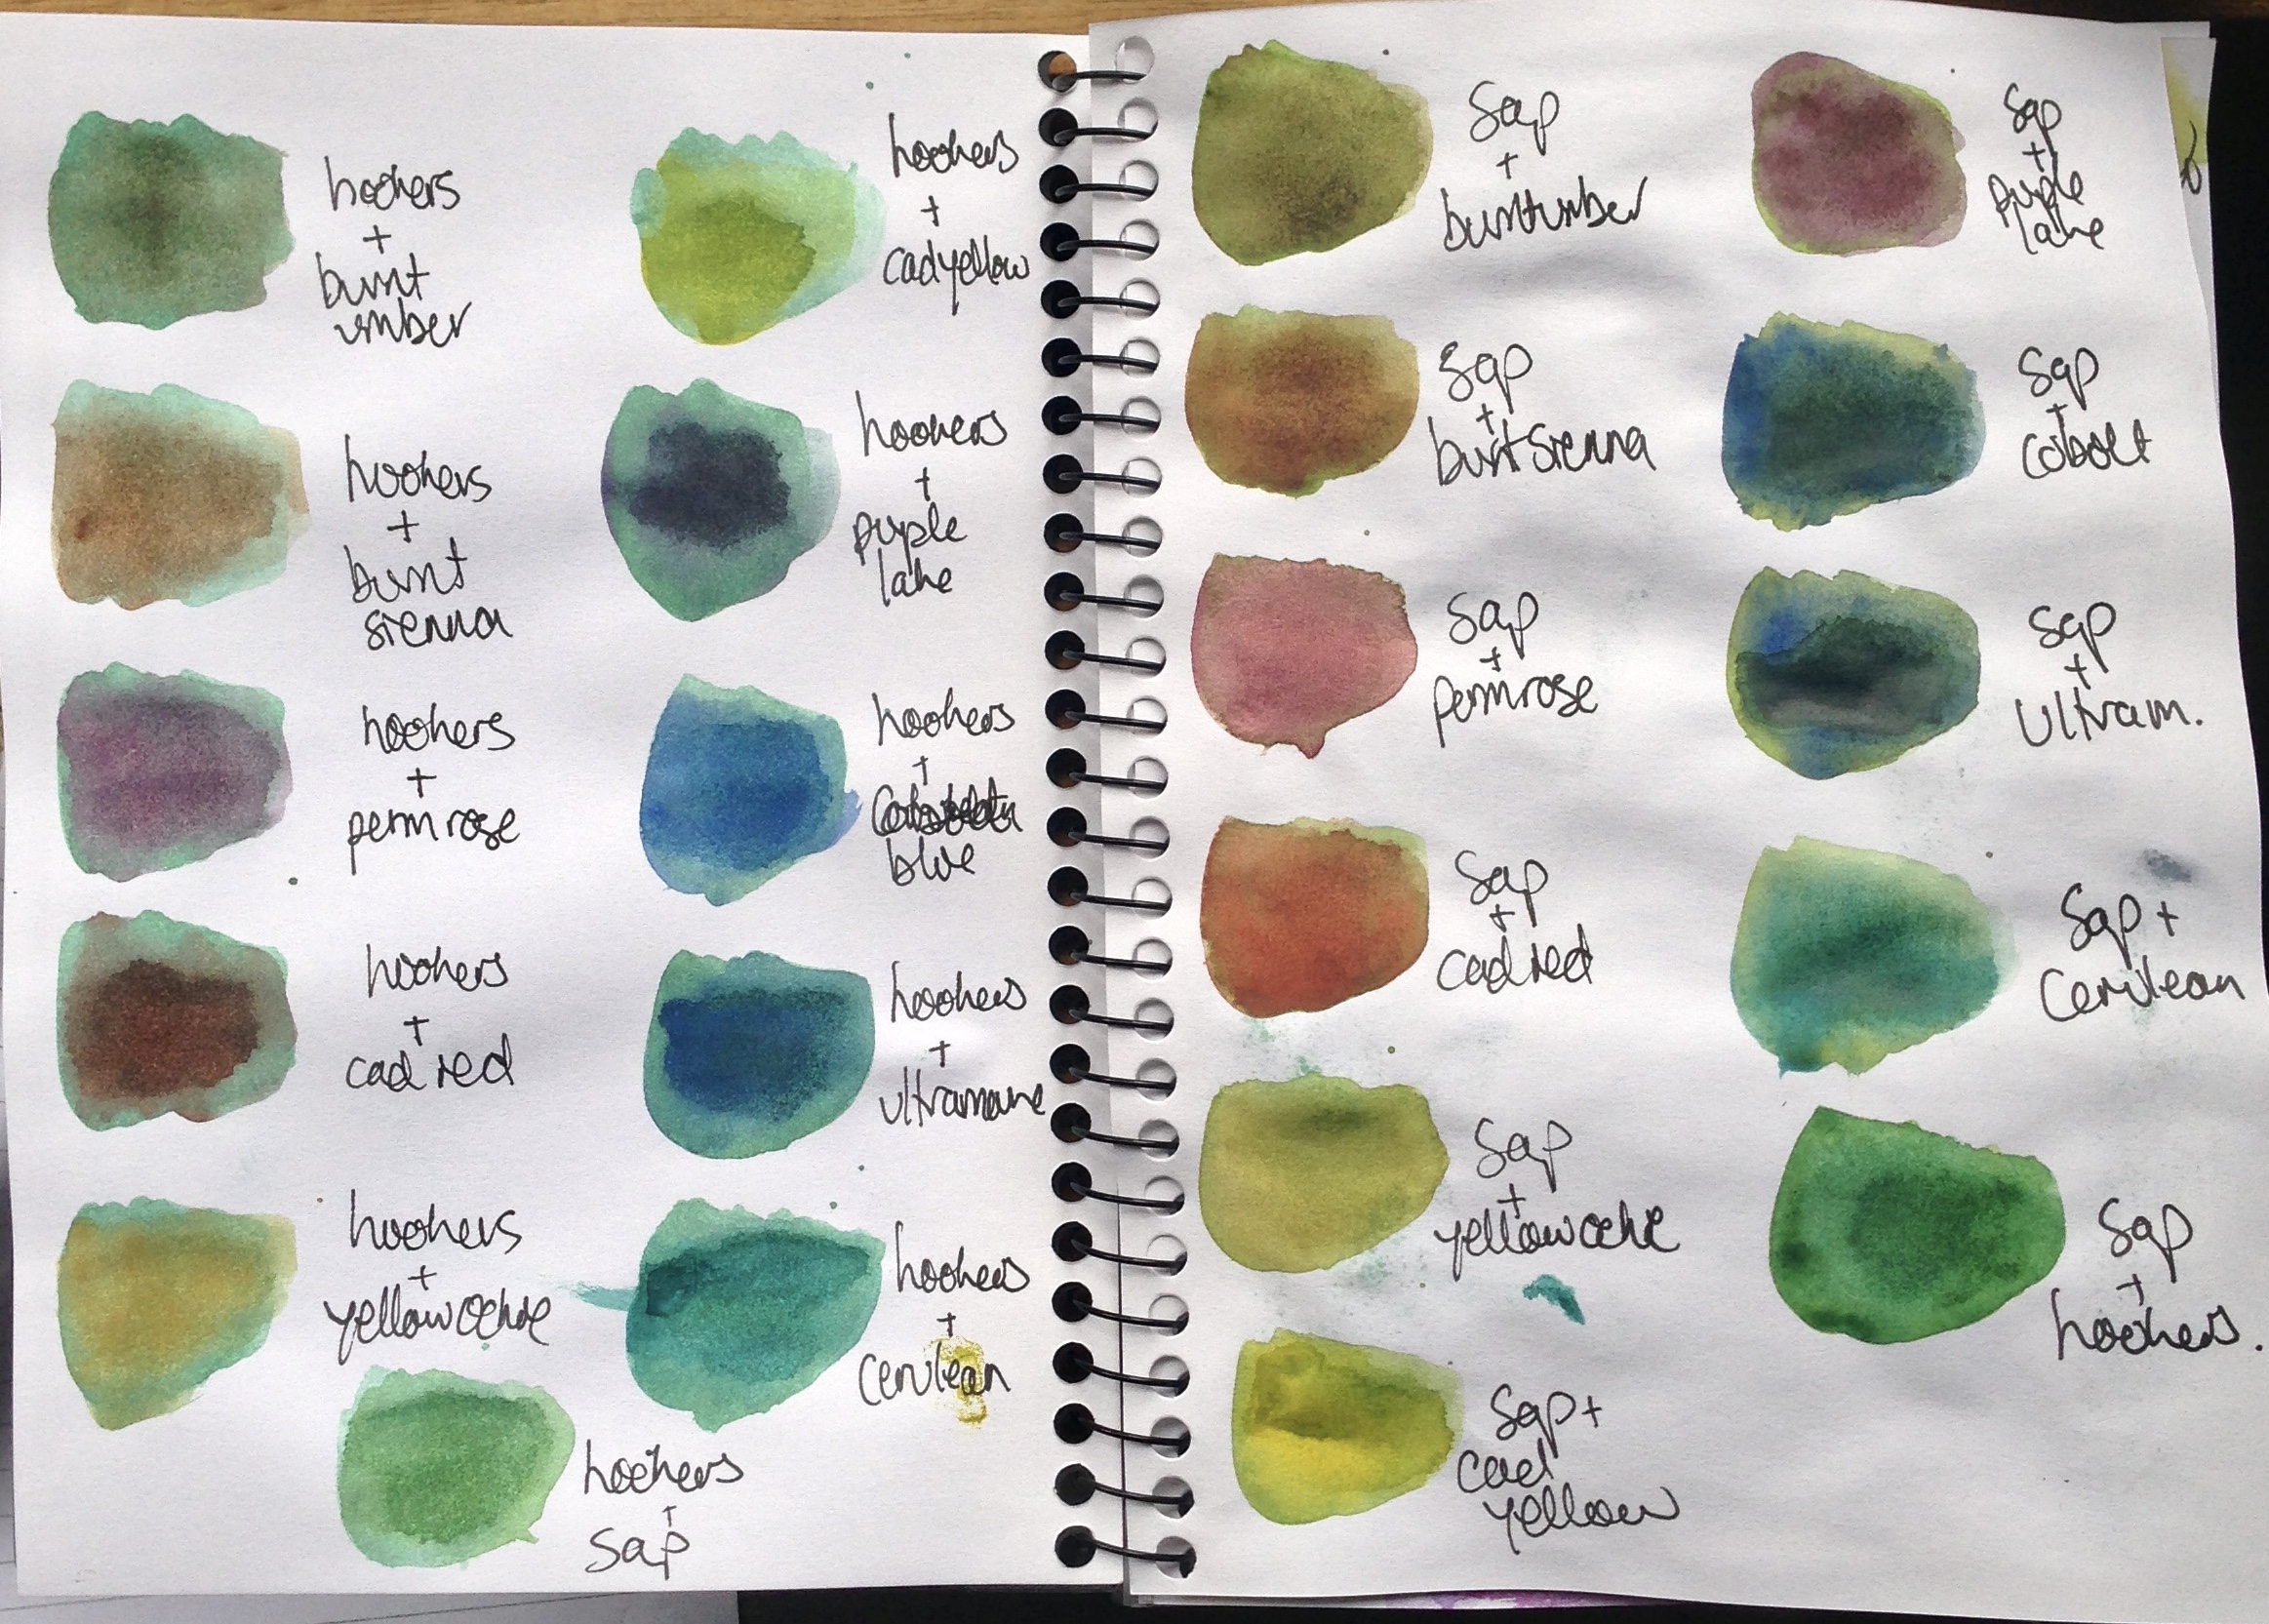 hookers
+
burnt
umber
hookers
+
burnt
sienna
hookers
+
perm rose
hookers
+
cad red
hookers
+
yellow ochre
hookers
+
sap
hookers
+
cad yellow
hookers
+
purple
lake
hookers
+
blue
hookers
+
ultramarine
hookers
+
cerulean
Sap
+
burnt umber
Sap
+
burnt sienna
Sap
+
perm rose
Sap
+
cad red
Sap
+
yellow ochre
Sap +
cad
yellow
Sap
+
purple
lake
Sap
+
cobalt
Sap
+
Ultram.
Sap +
Cerulean
Sap
+
hookers.